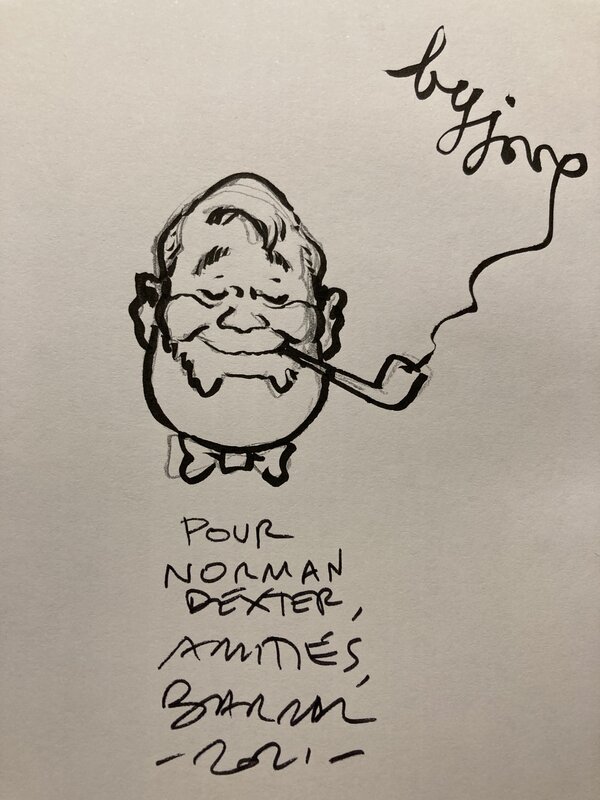 by jove
POUR
NORMAN
DEXTER,
AMITIÉS,
BARRAL
-2021-